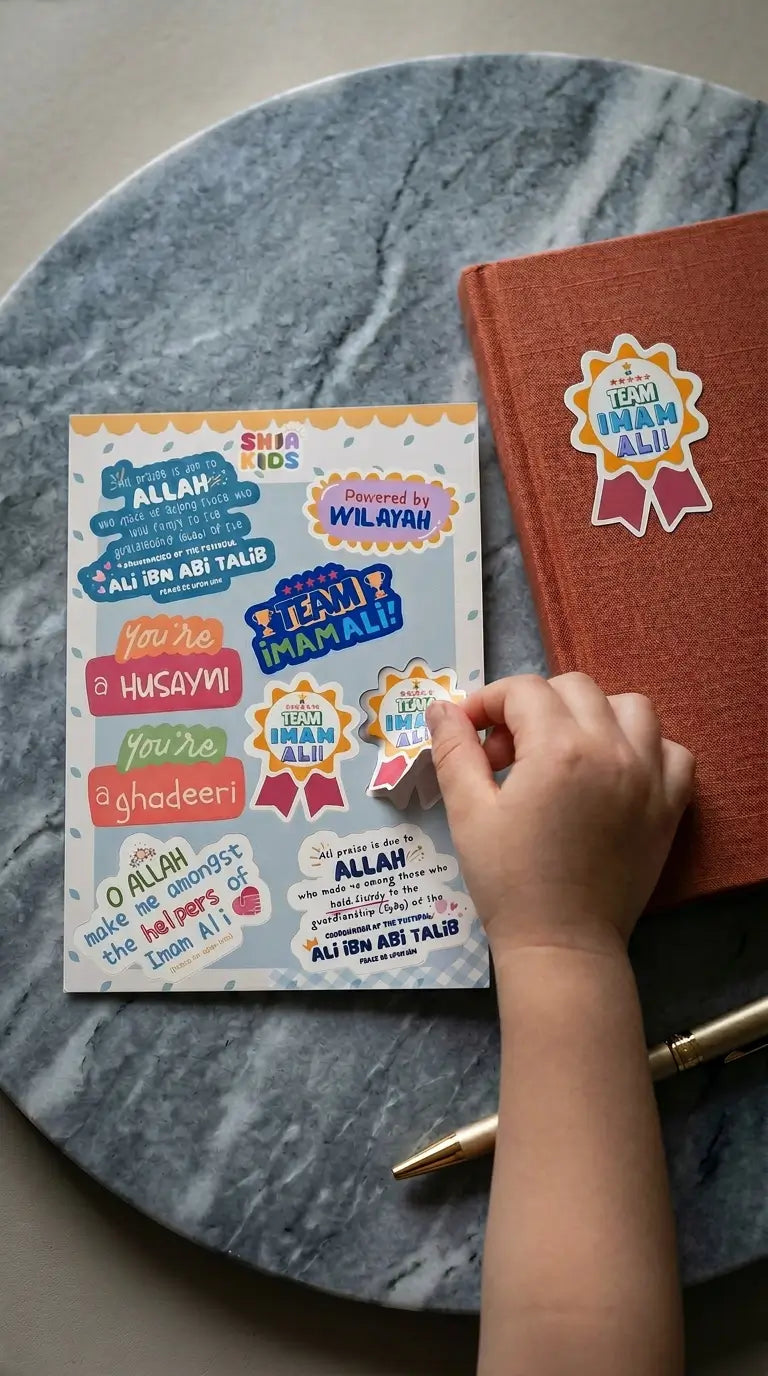 SHIA
KIDS
All praise is due to
ALLAH
who made
who
ALI IBN ABI TALIB
PEACE BE UPON
Powered by
WILAYAH
TEAM
IMAM ALI!
You're
a HUSAYNI
TEAM
IMAM
ALI!
TEAM
IMA
ALI
You're
a ghadeeri
O ALLAH
make me amongst
the helpers of
Imam Ali
All praise is due to
ALLAH
who made among those who
hold to the
of the
ALI IBN ABI TALIB
PEACE BE UPON
TEAM
IMAM
ALI!